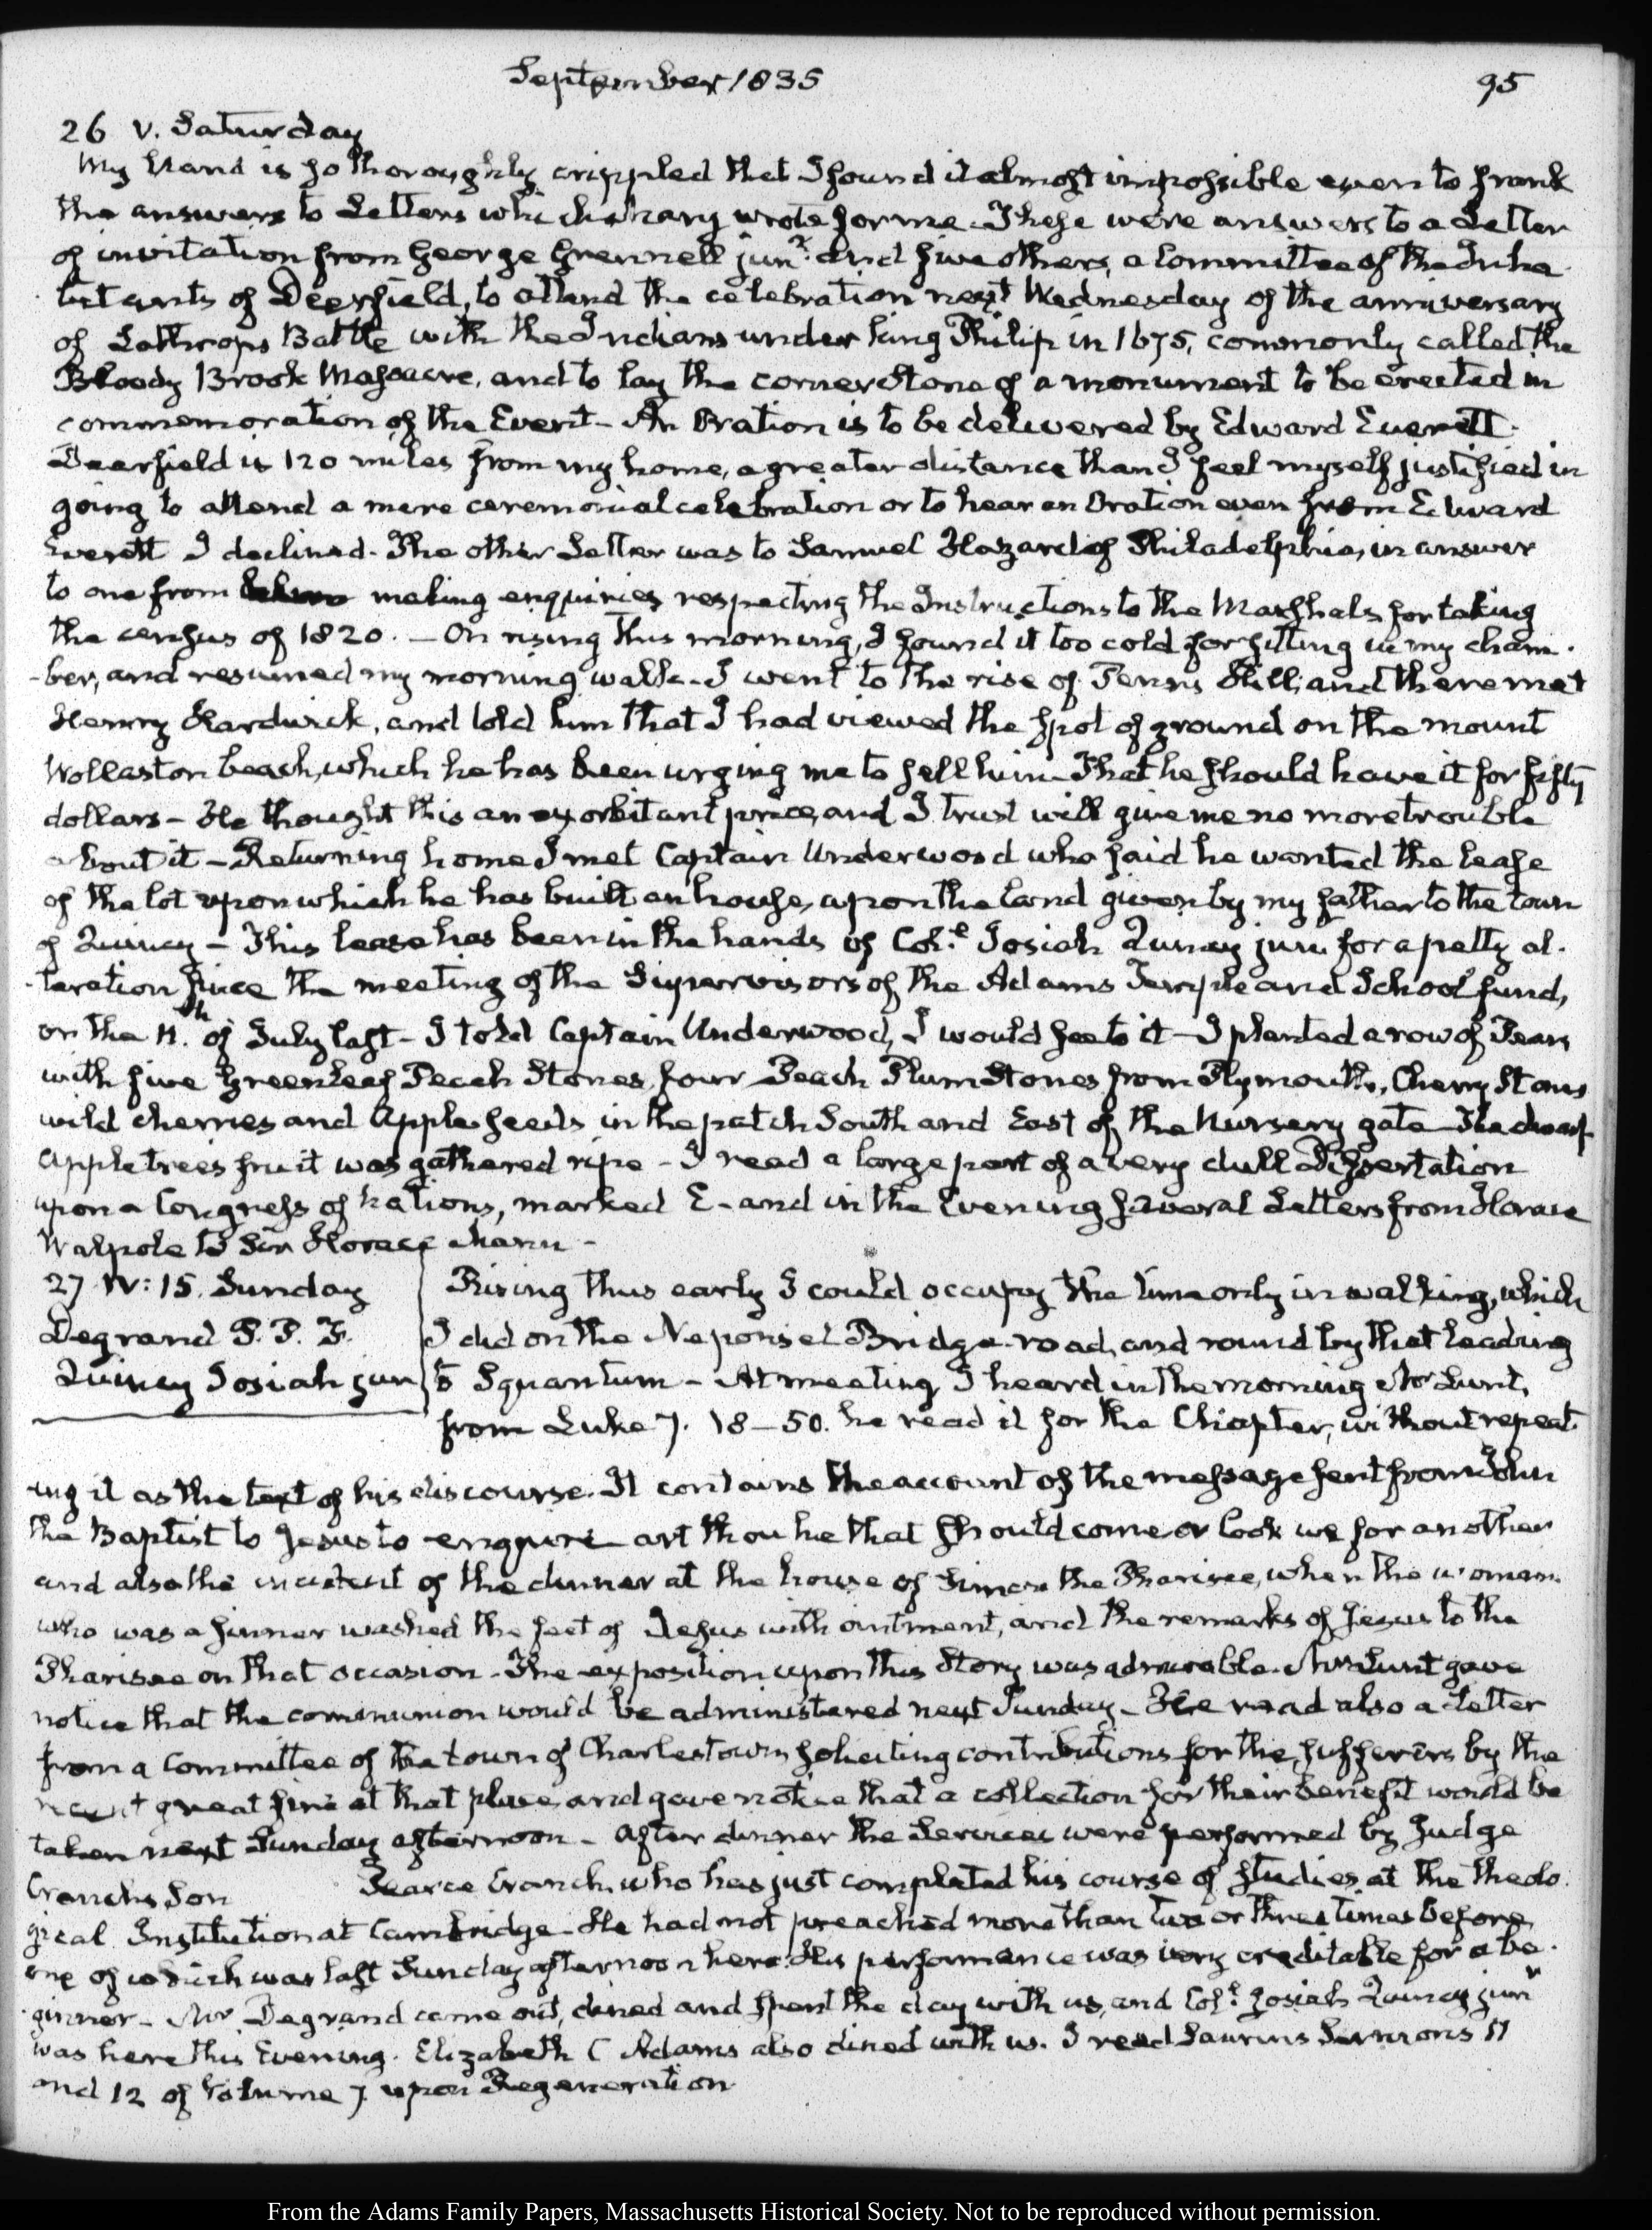 September 1835
95
26 V. Saturday
My hand is so thoroughly crippled that I found it almost impossible even to frank
the answers to Letters which Mary wrote for me. These were answers to a Letter
of invitation from George Grennell junr. and five others, a Committee of the Inha-
bitants of Deerfield, to attend the celebration next Wednesday of the anniversary
of Lothrops Battle with the Indians under king Philip in 1675, commonly called the
Bloody Brook Massacre, and to lay the corner Stone of a monument to be erected in
commemoration of the Event - An Oration is to be delivered by Edward Everett.
Deerfield is 120 miles from my home, a greater distance than I feel myself justified in
going to attend a mere ceremonial celebration or to hear an Oration even from Edward
Everett I declined. The other Letter was to Samuel Hazard of Philadelphia, in answer
to one from making enquiries respecting the Instructions to the Marshals for taking
the census of 1820. — On rising this morning, I found it too cold for sitting in my cham-
-ber, and resumed my morning walk. I went to the rise of Penns Hill, and there met
Henry Hardwick, and told him that I had viewed the spot of ground on the mount
Wollaston beach, which he has been urging me to sell him - That he should have it for fifty
dollars - He thought this an exorbitant price, and I trust will give me no more trouble
about it - Returning home I met Captain Underwood who said he wanted the lease
of the lot upon which he has built an house, upon the land given by my father to the town
of Quincy - This lease has been in the hands of Col.l Josiah Quincy junr. for a petty al-
-teration since the meeting of the Supervisors of the Adams Temple and School fund,
on the 11.th of July last - I told Captain Underwood, I would see to it - I planted a row of Pears
with five Greenleaf Peach Stones, four Peach Plum Stones from Plymouth, Cherry Stones
wild cherries and Apple seeds in the patch South and East of the Nursery gate - The dwarf
Apple trees fruit was gathered ripe - I read a large part of a very dull Dissertation
upon a Congress of Nations, marked E - and in the Evening several Letters from Horace
Walpole to Sir Horace Mann -
27 IV: 15. Sunday
Degrand P. P. F.
Quincy Josiah jun
Rising thus early I could occupy the time only in walking, which
I did on the Neponset Bridge road, and round by that leading
to Squantum - At meeting, I heard in the morning Mr Lunt,
from Luke 7. 18–50. he read it for the Chapter, without repeat-
ing it as the text of his discourse. It contains the account of the message sent from John
the Baptist to Jesus to enquire art thou he that should come or look we for another
and also the incident of the dinner at the house of Simon the Pharisee, when the woman
who was a sinner washed the feet of Jesus with ointment, and the remarks of Jesus to the
Pharisee on that occasion - The exposition upon this Story was admirable. Mr Lunt gave
notice that the communion would be administered next Sunday - He read also a Letter
from a Committee of the town of Charlestown soliciting contributions for the sufferers by the
recent great fire at that place, and gave notice that a collection for their benefit would be
taken next Sunday afternoon - After dinner the Services were performed by Judge
Cranchs Son Pearce Cranch, who has just completed his course of studies at the theolo-
gical Institution at Cambridge - He had not preached more than two or three times before
one of which was last Sunday afternoon here. His performance was very creditable for a be-
-ginner - Mr Degrand came out, dined and spent the day with us, and Col.l Josiah Quincy junr
was here this Evening. Elizabeth C Adams also dined with us. I read Saurins Sermons 11
and 12 of Volume 7. upon Regeneration
From the Adams Family Papers, Massachusetts Historical Society. Not to be reproduced without permission.